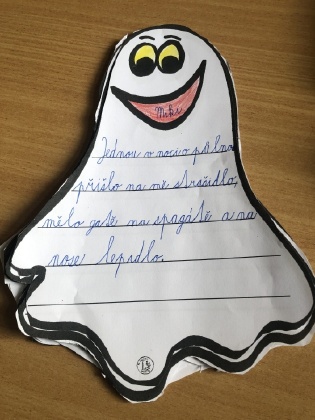 Miki
Jednou v noci o půlno
přišlo na mě strašidlo,
mělo gatě na špagátě a na
nose lepidlo.